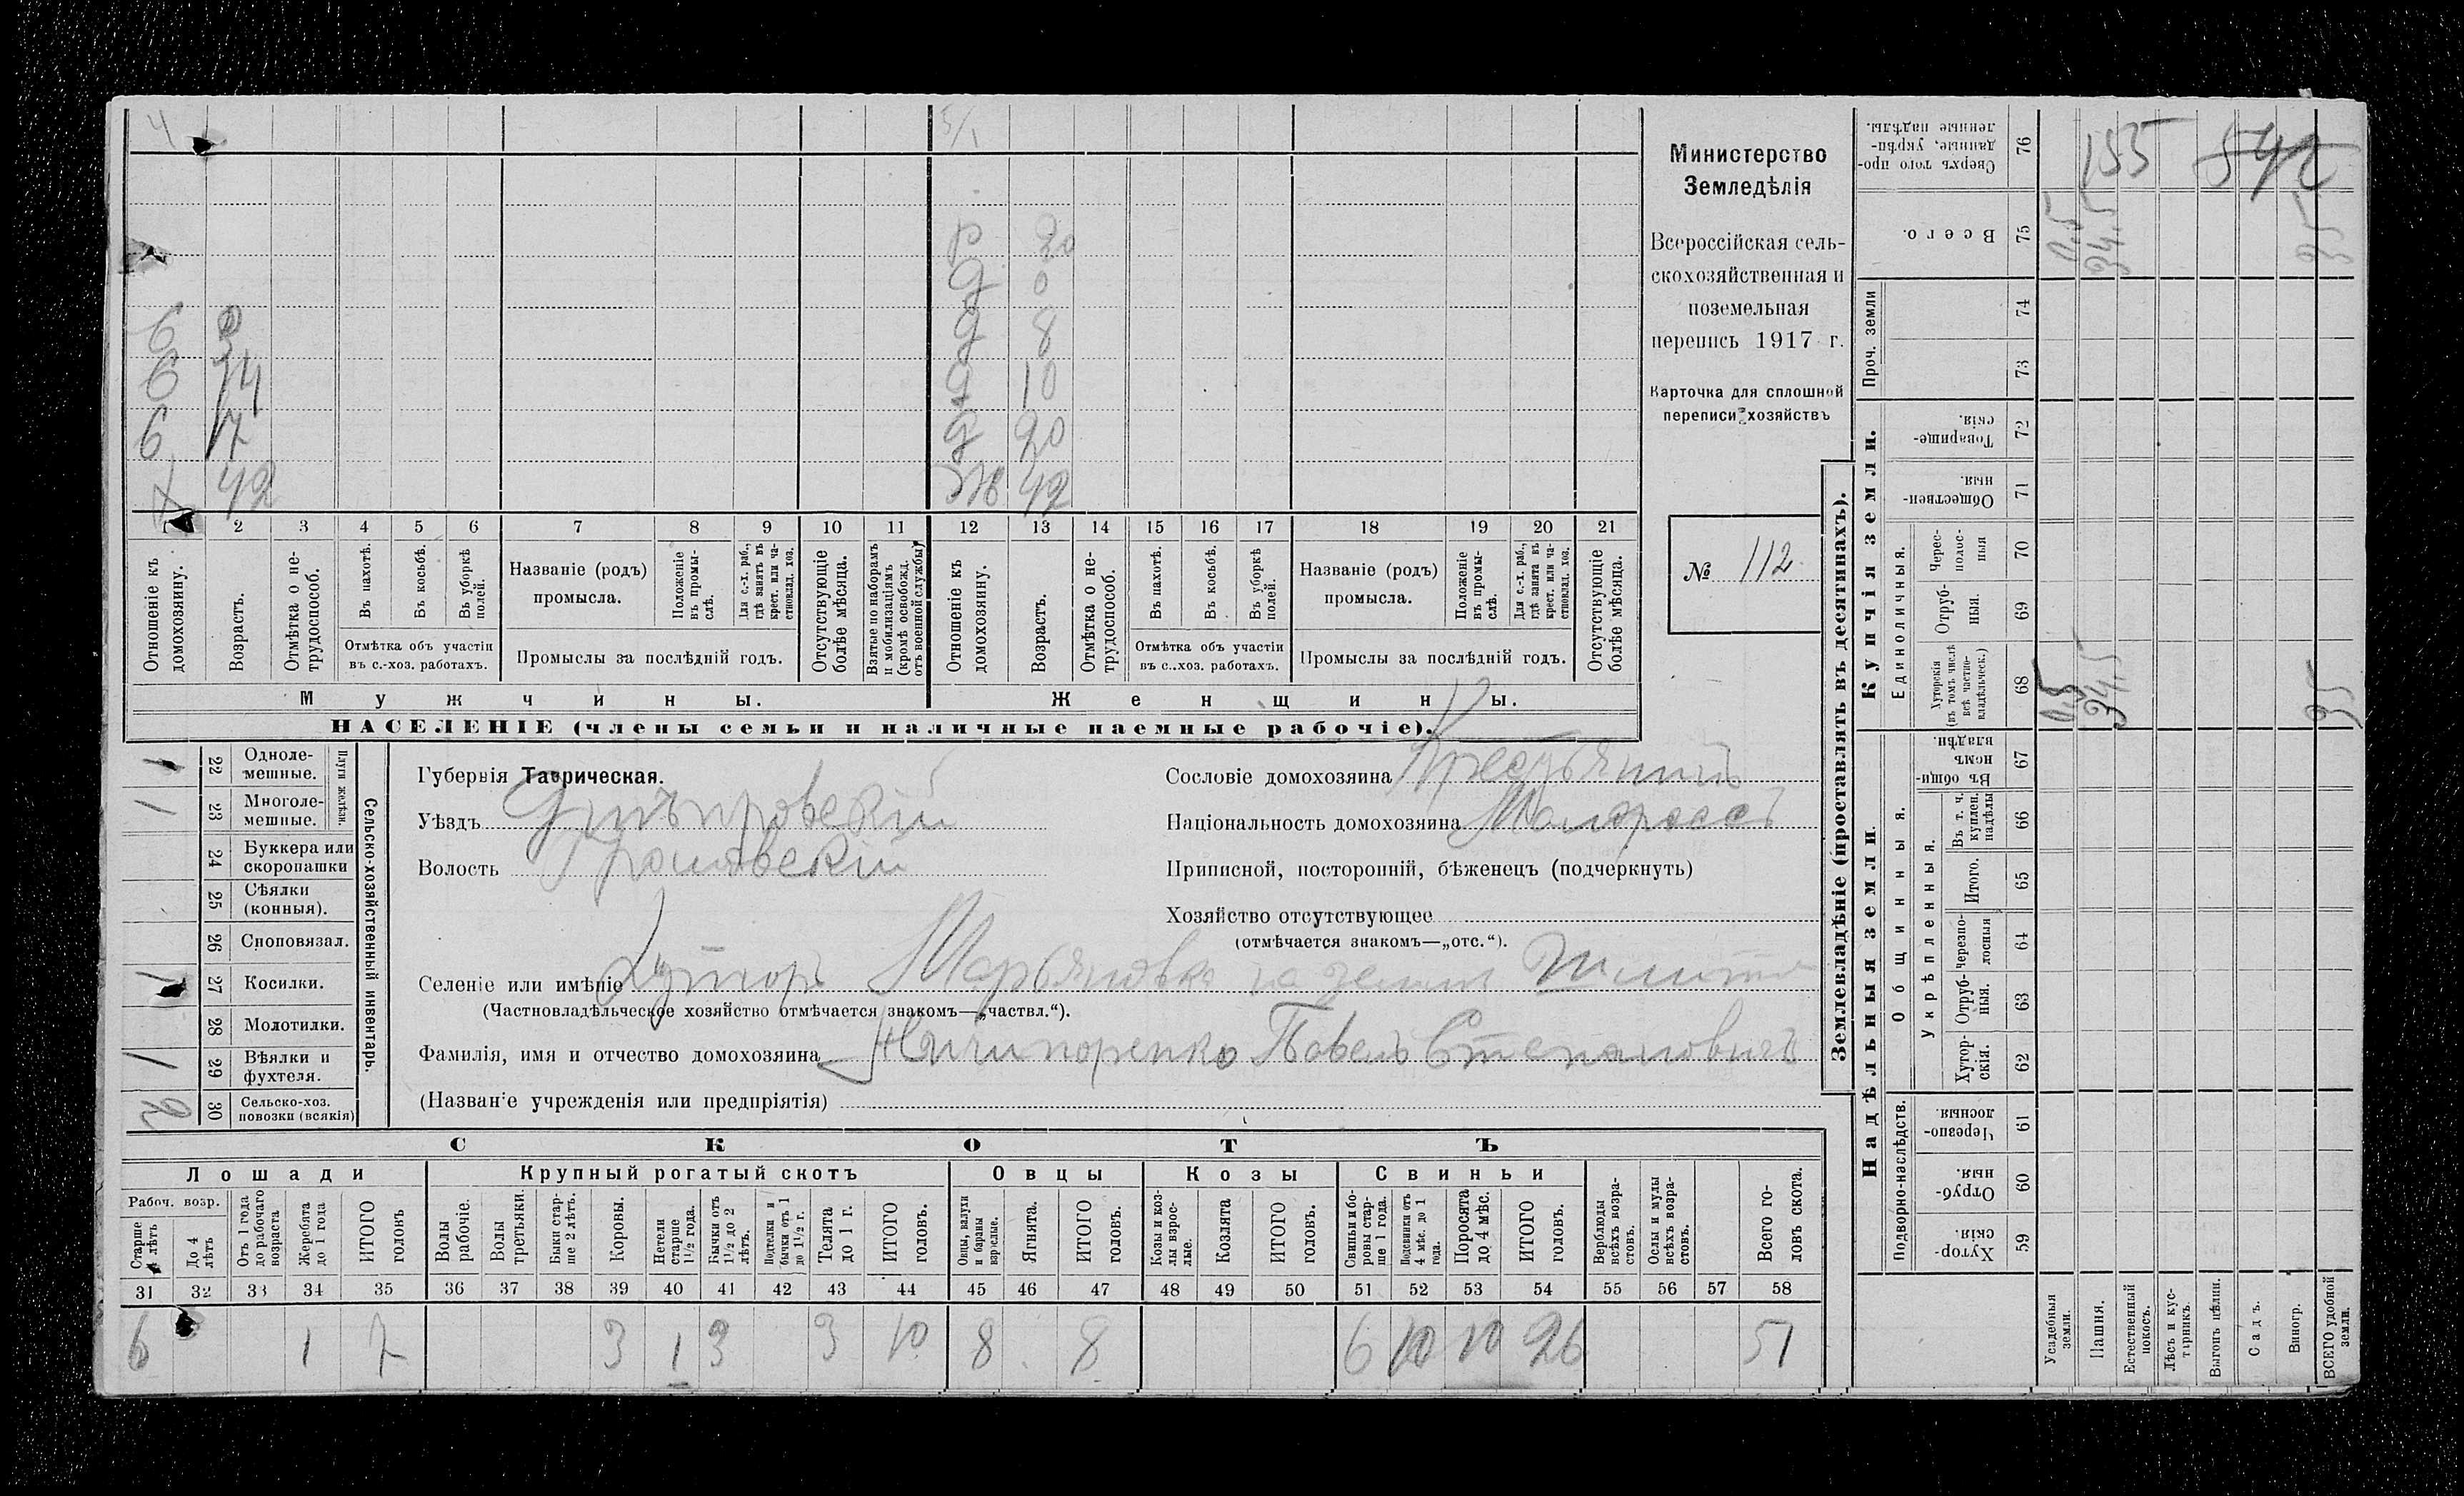 4
5/1
р 20
д 0
д 8
б 3
б 14
д 10
б 17
д 20
х 42
Ж 42
1 2 3 4 5 6 7 8 9 10 11 12 13 14 15 16 17 18 19 20 21
Отношеніе къ домохозяину.
Возрастъ.
Отмѣтка о не-трудоспособ.
Въ пахотѣ.
Въ косьбѣ.
Въ уборкѣ полей.
Отмѣтка объ участіи въ с.-хоз. работахъ.
Названіе (родъ) промысла.
Положеніе въ промы-слѣ.
Для с.-х. раб., гдѣ занятъ въ крест. или ча-стновлад. хоз.
Промыслы за послѣдній годъ.
Отсутствующіе болѣе мѣсяца.
Взятые по наборамъ и мобилизаціямъ (кромѣ освобожд. отъ военной службы)
Отношеніе къ домохозяину.
Возрастъ.
Отмѣтка о не-трудоспособ.
Въ пахотѣ.
Въ косьбѣ.
Въ уборкѣ полей.
Отмѣтка объ участіи въ с.-хоз. работахъ.
Названіе (родъ) промысла.
Положеніе въ промы-слѣ.
Для с.-х. раб., гдѣ занята въ крест. или ча-стновлад. хоз.
Промыслы за послѣдній годъ.
Отсутствующіе болѣе мѣсяца.
Мужчины.
Женщины.
НАСЕЛЕНІЕ (члены семьи и наличные наемные рабочіе).
Министерство
Земледѣлія
Всероссійская сель-
скохозяйственная и
поземельная
перепись 1917 г.
Карточка для сплошной
переписи хозяйствъ
№ 112
1 22 Одноле-мешные.
1 23 Многоле-мешные.
Плуги желѣзн.
24 Буккера или скоропашки
25 Сѣялки (конныя).
26 Сноповязал.
1 27 Косилки.
28 Молотилки.
1 29 Вѣялки и фухтеля.
2 30 Сельско-хоз. повозки (всякія)
Сельско-хозяйственный инвентарь.
Губернія Таврическая.
Уѣздъ Днѣпровскій
Волость
Сословіе домохозяина Крестьянинъ
Національность домохозяина Малороссъ
Приписной, посторонній, бѣженецъ (подчеркнуть)
Хозяйство отсутствующее
(отмѣчается знакомъ—„отс.“).
Селеніе или имѣніе Хуторъ Марьяновка на земли
(Частновладѣльческое хозяйство отмѣчается знакомъ—„частвл.“).
Фамилія, имя и отчество домохозяина Ничипоренко Павелъ Степановичъ
(Названіе учрежденія или предпріятія)
СКОТЪ
Лошади
Крупный рогатый скотъ
Овцы
Козы
Свиньи
Рабоч. возр.
Старше 4 лѣтъ
До 4 лѣтъ
Отъ 1 года до рабочаго возраста
Жеребята до 1 года
ИТОГО головъ
Волы рабочіе.
Волы третьяки.
Быки стар-ше 2 лѣтъ.
Коровы.
Нетели старше 1½ года.
Бычки отъ 1½ до 2 лѣтъ.
Подтелки и бычки отъ 1 до 1½ г.
Телята до 1 г.
ИТОГО головъ.
Овцы, валухи и бараны взрослые.
Ягнята.
ИТОГО головъ.
Козы и коз-лы взрос-лые.
Козлята
ИТОГО головъ.
Свиньи и бо-ровы стар-ше 1 года.
Подсвинки отъ 4 мѣс. до 1 года.
Поросята до 4 мѣс.
ИТОГО головъ.
Верблюды всѣхъ возра-стовъ.
Ослы и мулы всѣхъ возра-стовъ.
Всего го-ловъ скота.
31 32 33 34 35 36 37 38 39 40 41 42 43 44 45 46 47 48 49 50 51 52 53 54 55 56 57 58
6 1 7 3 1 3 3 10 8 8 6 10 10 26 51
Землевладѣніе (проставлять въ десятинахъ).
Сверхъ того про-данные, укрѣп-ленные надѣлы. 76 155 542
Всего. 75 0,5 34.5 35
Проч. земли
74
73
Купчія земли.
Товарище-скія. 72
Обществен-ныя. 71
Единоличныя.
Черес-полос-ныя 70
Отруб-ныя. 69
Хуторскія (въ томъ числѣ всѣ частно-владѣльческ.) 68 0,5 34.5 35
Надѣльныя земли.
Общинныя.
Въ общин-номъ владѣн. 67
Укрѣпленныя.
Въ т. ч. куплен. надѣлы 66
Итого. 65
Черезпо-лосныя 64
Отруб-ныя. 63
Хутор-скія. 62
Подворно-наслѣдств.
Черезпо-лосныя. 61
Отруб-ныя. 60
Хутор-скія. 59
Усадебныя земли.
Пашня.
Естественный покосъ.
Лѣсъ и кус-тарникъ.
Выгонъ цѣлин.
Садъ.
Виногр.
ВСЕГО удобной земли.